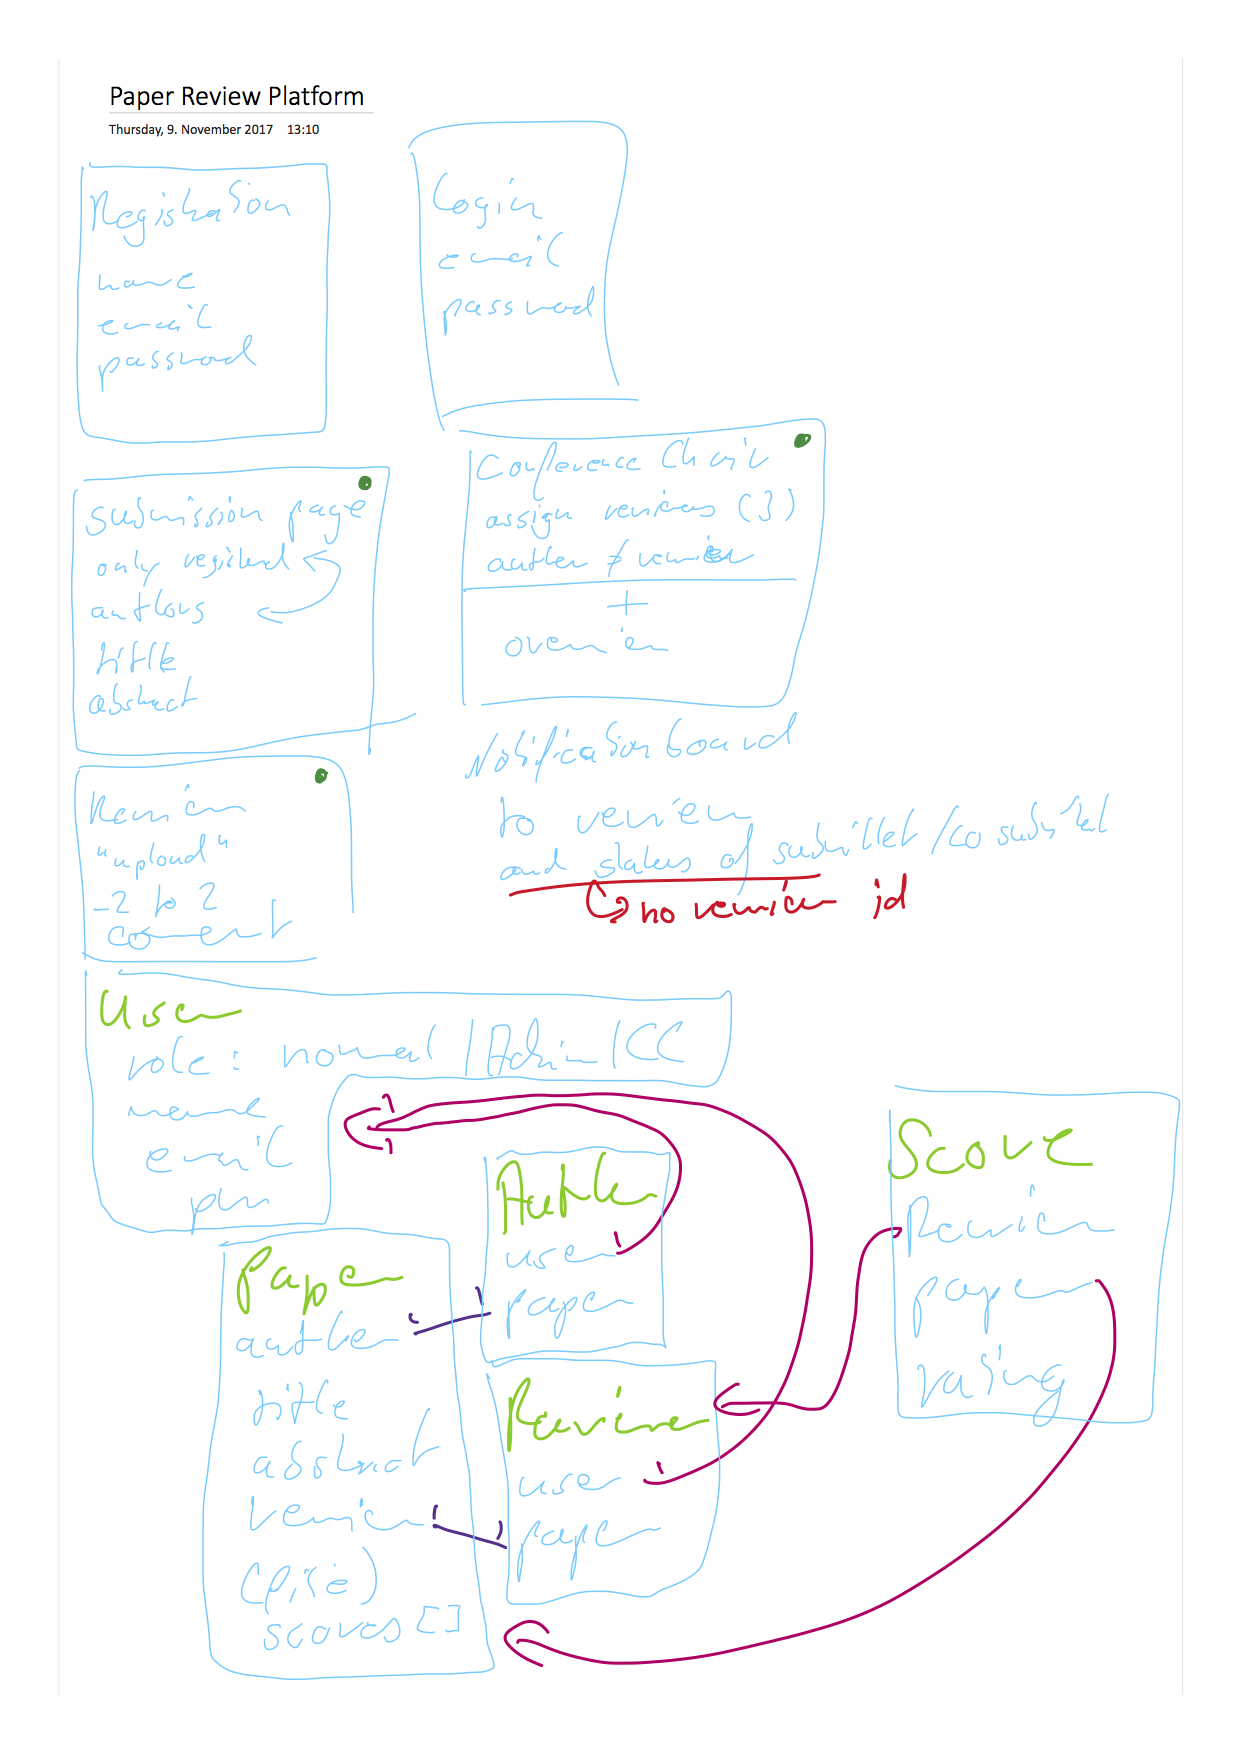 Paper Review Platform
Thursday, 9. November 2017 13:10
Registration
name
email
password
Login
email
password
submission page
only registered
authors
title
abstract
Conference Chair
assign reviews (3)
author ≠ reviewer
+
overview
Notification board
to review
and status of submittet / co submittet
no reviewer id
Review
"upload"
-2 to 2
coment
User
role: normal / Admin / CC
name
email
pw
Author
user
paper
Paper
author
title
abstract
review
(file)
scores []
Review
user
paper
Score
Review
paper
rating